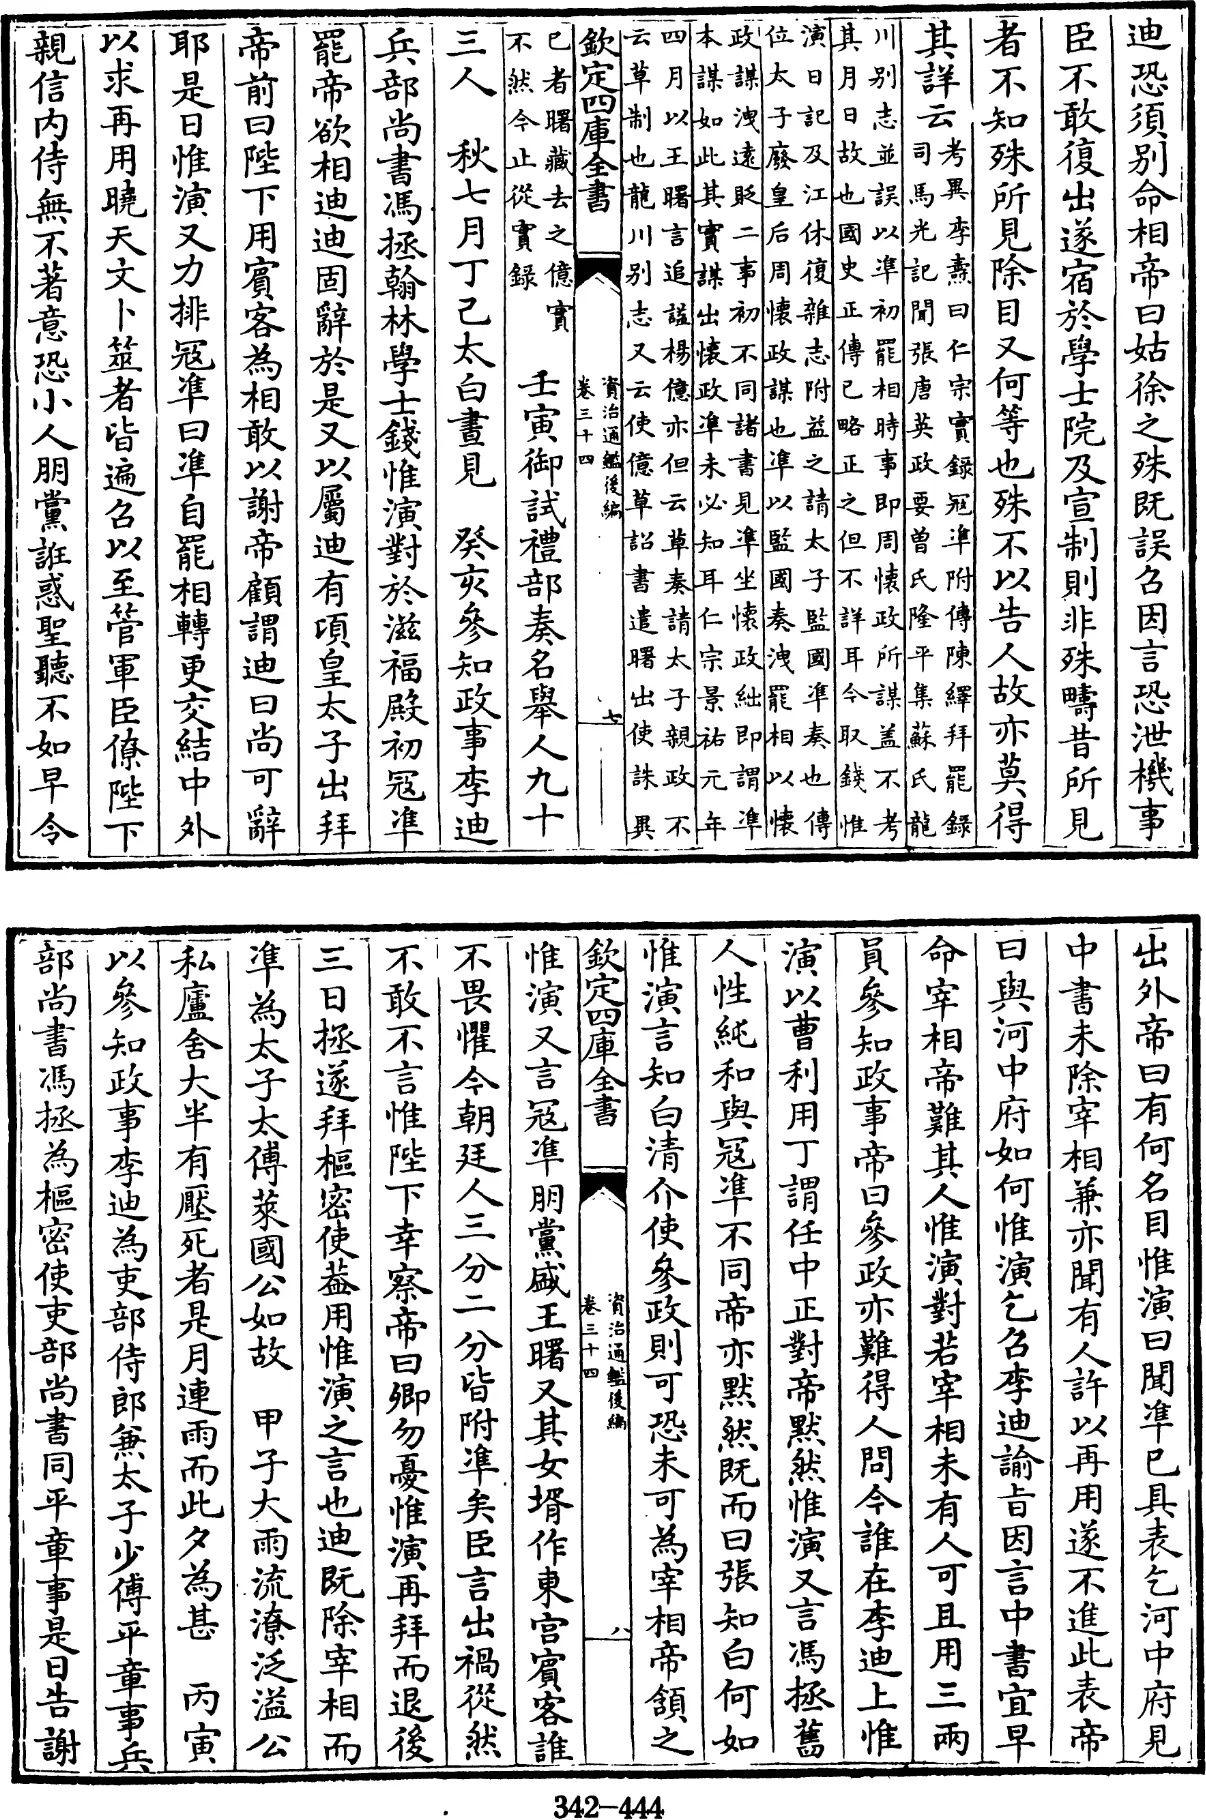 迪恐須别命相帝曰姑徐之殊既誤召因言恐泄機事
臣不敢復出遂宿於學士院及宣制則非殊疇昔所見
者不知殊所見除目又何等也殊不以告人故亦莫得
其詳云
考異李燾曰仁宗實録冦準附傳陳繹拜罷録
司馬光記聞張唐英政要曾氏隆平集蘇氏龍
川别志並誤以準初罷相時事即周懷政所謀盖不考
其月日故也國史正傳已略正之但不詳耳今取錢惟
演日記及江休復雜志附益之請太子監國準奏也傳
位太子廢皇后周懷政謀也準以監國奏洩罷相以懷
政謀洩遠貶二事初不同諸書見準坐懷政絀即謂準
本謀如此其實謀出懷政準未必知耳仁宗景祐元年
四月以王曙言追謚楊億亦但云草奏請太子親政不
云草制也龍川别志又云使億草詔書遣曙出使誅異
欽定四庫全書
資治通鑑後編
卷三十四
七
已者曙藏去之億實
不然今止從實録
壬寅御試禮部奏名舉人九十
三人 秋七月丁己太白晝見 癸亥參知政事李迪
兵部尚書馮拯翰林學士錢惟演對於滋福殿初冦準
罷帝欲相迪迪固辭於是又以屬迪有頃皇太子出拜
帝前曰陛下用賓客為相敢以謝帝顧謂迪曰尚可辭
耶是日惟演又力排冦準曰準自罷相轉更交結中外
以求再用曉天文卜筮者皆遍召以至管軍臣僚陛下
親信内侍無不著意恐小人朋黨誑惑聖聽不如早令
出外帝曰有何名目惟演曰聞準已具表乞河中府見
中書未除宰相兼亦聞有人許以再用遂不進此表帝
曰與河中府如何惟演乞召李迪諭㫖因言中書宜早
命宰相帝難其人惟演對若宰相未有人可且用三兩
員參知政事帝曰參政亦難得人問今誰在李迪上惟
演以曹利用丁謂任中正對帝默然惟演又言馮拯舊
人性純和與冦準不同帝亦默然既而曰張知白何如
惟演言知白清介使參政則可恐未可為宰相帝頷之
欽定四庫全書
資治通鑑後編
卷三十四
八
惟演又言冦準朋黨盛王曙又其女壻作東宫賓客誰
不畏懼今朝廷人三分二分皆附準矣臣言出禍從然
不敢不言惟陛下幸察帝曰卿勿憂惟演再拜而退後
三日拯遂拜樞密使葢用惟演之言也迪既除宰相而
準為太子太傅萊國公如故 甲子大雨流潦泛溢公
私廬舍大半有壓死者是月連雨而此夕為甚 丙寅
以參知政事李迪為吏部侍郎兼太子少傅平章事兵
部尚書馮拯為樞密使吏部尚書同平章事是日告謝
342-444